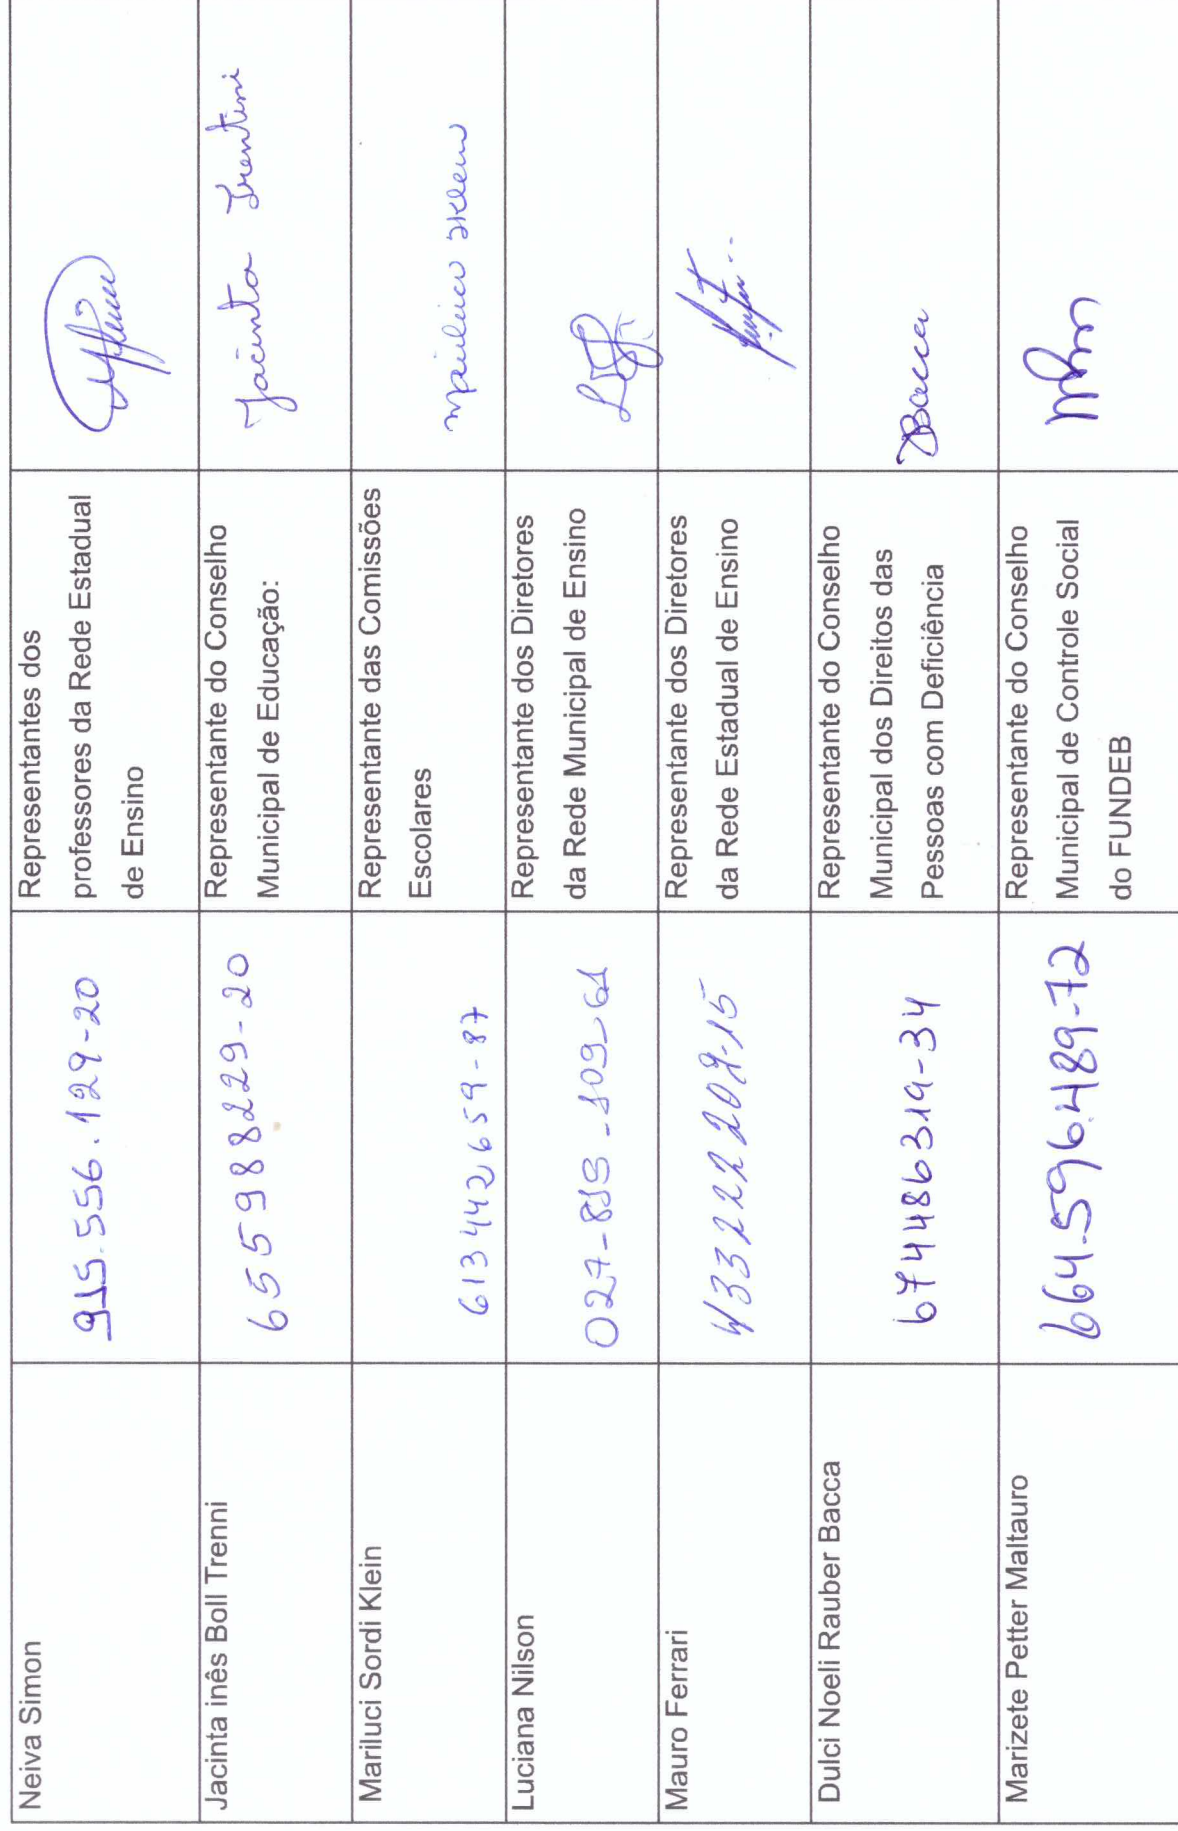 Neiva Simon
915.556.129-20
Representantes dos
professores da Rede Estadual
de Ensino
Jacinta inês Boll Trenni
655988229-20
Representante do Conselho
Municipal de Educação:
Jacinta Trentini
Mariluci Sordi Klein
613442659-87
Representante das Comissões
Escolares
Mariluci Klein
Luciana Nilson
027-819-109-61
Representante dos Diretores
da Rede Municipal de Ensino
Mauro Ferrari
Representante dos Diretores
da Rede Estadual de Ensino
Dulci Noeli Rauber Bacca
674486319-34
Representante do Conselho
Municipal dos Direitos das
Pessoas com Deficiência
Bacca
Marizete Petter Maltauro
664.596.489-72
Representante do Conselho
Municipal de Controle Social
do FUNDEB